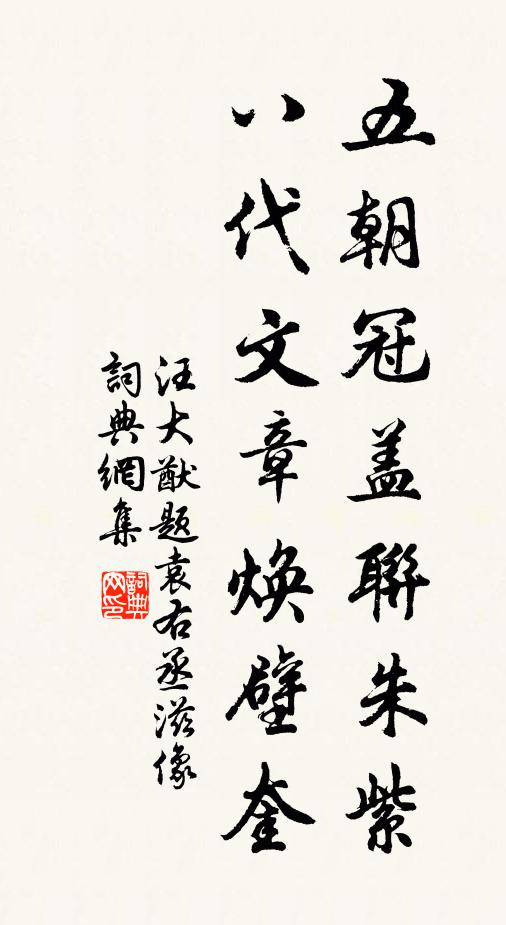 五朝冠盖聯朱紫
八代文章焕壁奎
汪大猷题袁右丞滋像
詞典網集
詞典网印